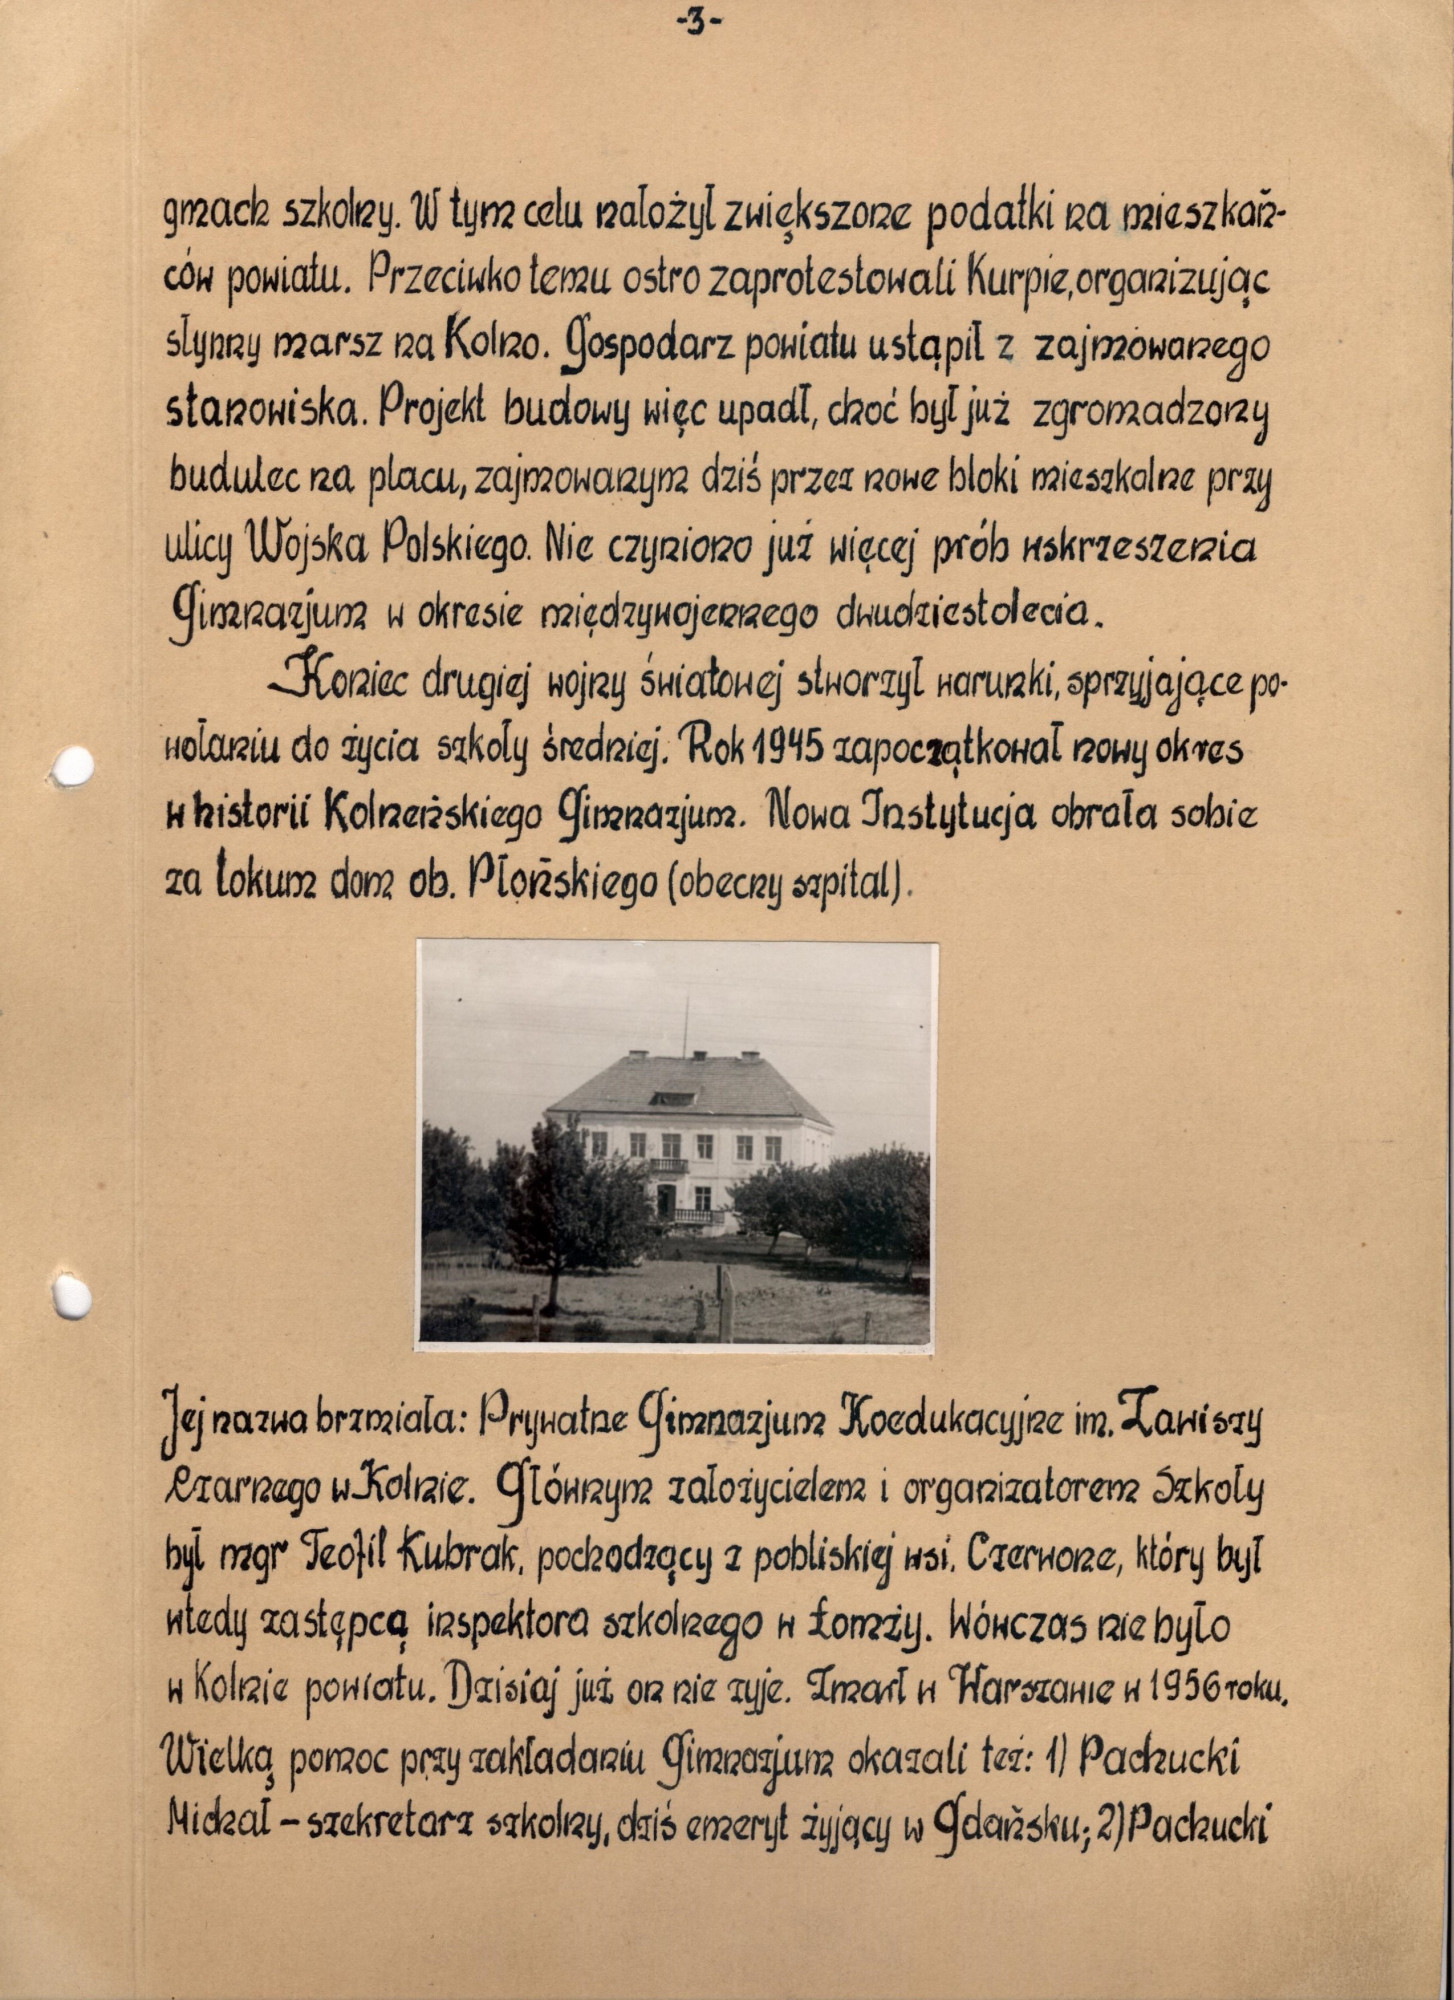 -3-
gmach szkolny. W tym celu nałożył zwiększone podatki na mieszkań-
ców powiatu. Przeciwko temu ostro zaprotestowali Kurpie, organizując
słynny marsz na Kolno. Gospodarz powiatu ustąpił z zajmowanego
stanowiska. Projekt budowy więc upadł, choć był już zgromadzony
budulec na placu, zajmowanym dziś przez nowe bloki mieszkalne przy
ulicy Wojska Polskiego. Nie czyniono już więcej prób wskrzeszenia
Gimnazjum w okresie międzywojennego dwudziestolecia.
Koniec drugiej wojny światowej stworzył warunki, sprzyjające po-
wołaniu do życia szkoły średniej. Rok 1945 zapoczątkował nowy okres
w historii Kolneńskiego Gimnazjum. Nowa Instytucja obrała sobie
za lokum dom ob. Płońskiego (obecny szpital).
Jej nazwa brzmiała: Prywatne Gimnazjum Koedukacyjne im. Zawiszy
Czarnego w Kolnie. Głównym założycielem i organizatorem Szkoły
był mgr Teofil Kubrak, pochodzący z pobliskiej wsi, Czerwone, który był
wtedy zastępcą inspektora szkolnego w Łomży. Wówczas nie było
w Kolnie powiatu. Dzisiaj już on nie żyje. Zmarł w Warszawie w 1956 roku.
Wielką pomoc przy zakładaniu Gimnazjum okazali też: 1) Pachucki
Michał – szekretarz szkolny, dziś emeryt żyjący w Gdańsku; 2) Pachucki